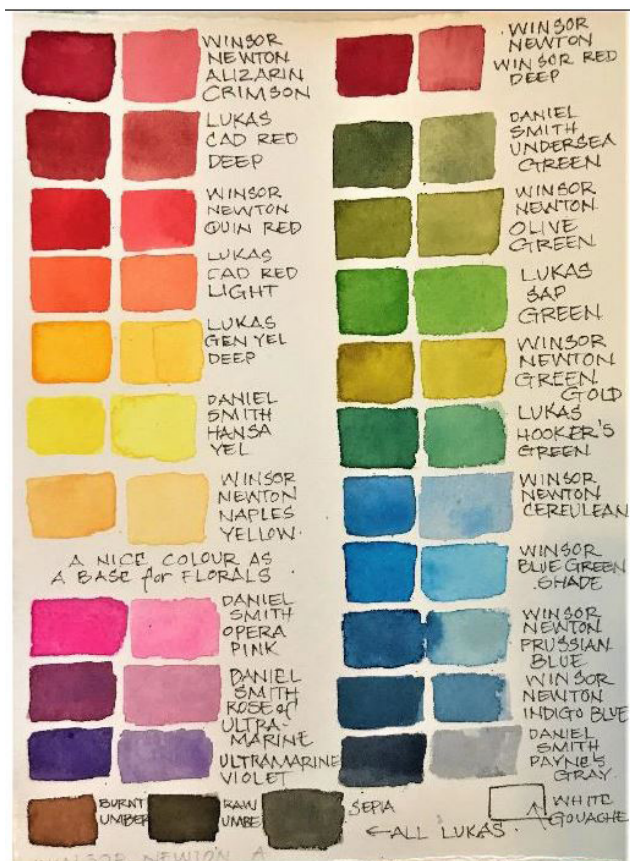 WINSOR
NEWTON
ALIZARIN
CRIMSON
LUKAS
CAD RED
DEEP
WINSOR
NEWTON
QUIN RED
LUKAS
CAD RED
LIGHT
LUKAS
GEN YEL
DEEP
DANIEL
SMITH
HANSA
YEL
WINSOR
NEWTON
NAPLES
YELLOW.
A NICE COLOUR AS
A BASE for FLORALS
DANIEL
SMITH
OPERA
PINK
DANIEL
SMITH
ROSE of
ULTRA-
MARINE
ULTRAMARINE
VIOLET
WINSOR
NEWTON
WINSOR RED
DEEP
DANIEL
SMITH
UNDERSEA
GREEN
WINSOR
NEWTON
OLIVE
GREEN
LUKAS
SAP
GREEN
WINSOR
NEWTON
GREEN
GOLD
LUKAS
HOOKER'S
GREEN
WINSOR
NEWTON
CEREULEAN
WINSOR
BLUE GREEN
SHADE
WINSOR
NEWTON
PRUSSIAN
BLUE
WINSOR
NEWTON
INDIGO BLUE
DANIEL
SMITH
PAYNE'S
GRAY
BURNT
UMBER
RAW
UMBE
SEPIA
←ALL LUKAS.
WHITE
GOUACHE
WINSOR NEWTON A